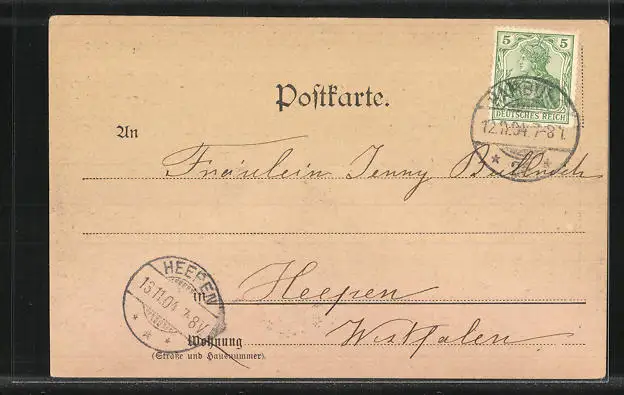 5 5
DEUTSCHES REICH
12.11.04. 7-8 V.
Postkarte.
An
Fräulein Jenny
HEEPEN
13.11.04. 7-8 V.
in Heepen
Westfalen
Wohnung
(Straße und Hausnummer).